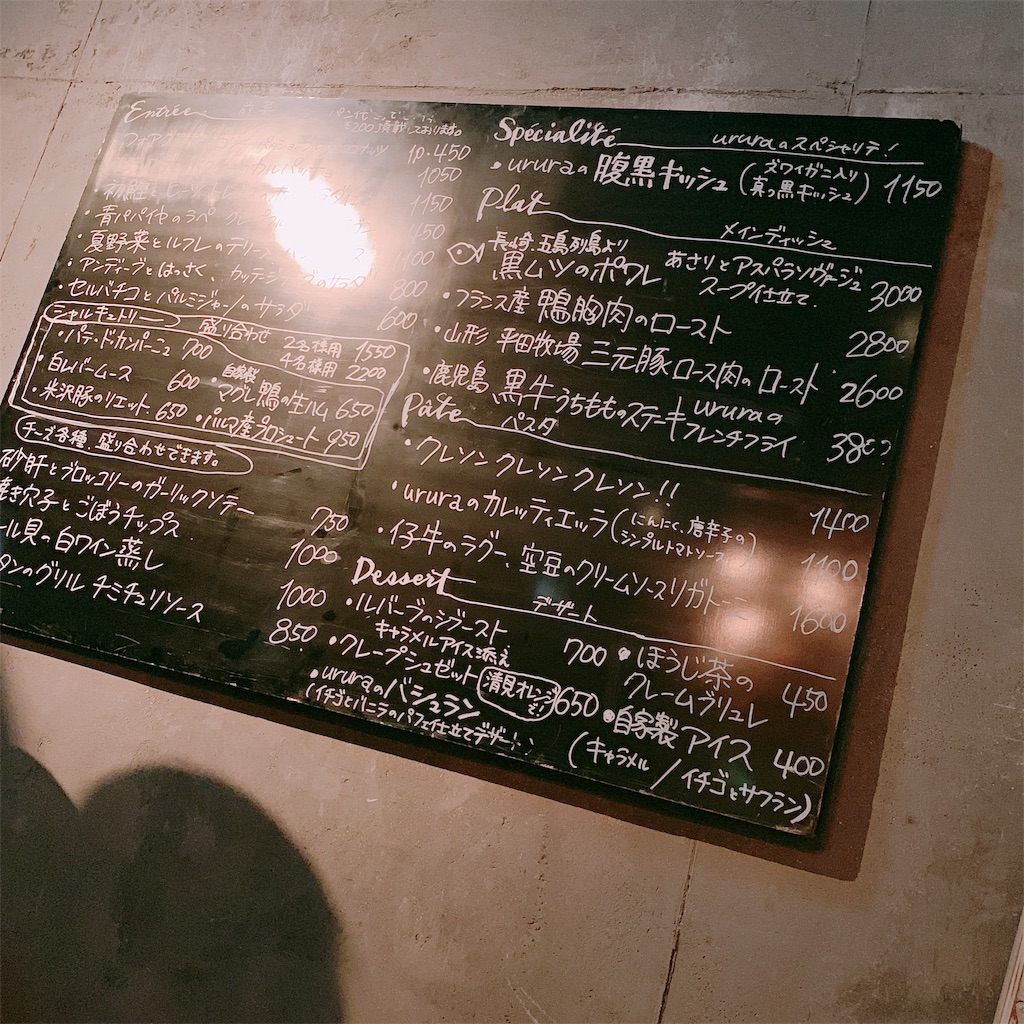 Entrée 前菜
¥200頂戴しております。
1p・450
1050
1150
青パパイヤのラペ 450
夏野菜とルフレのテリーヌ 1100
アンディーブとはっさく、カッテージ のサラダ 800
・セルバチコとパルミジャーノのサラダ 600
シャルキュトリー 盛り合わせ 2名様用 1550
4名様用 2200
・パテ・ド・カンパーニュ 700
・白レバームース 600
・自家製 マグレ鴨の生ハム 650
・米沢豚のリエット 650
・パルマ産プロシュート 950
チーズ各種、盛り合わせできます。
砂肝とブロッコリーのガーリックソテー 750
焼き穴子とごぼうチップス 1000
ール貝の白ワイン蒸し 1000
タンのグリル チミチュリソース 850
Spécialité ururaのスペシャリテ!
・ururaの腹黒キッシュ (ズワイガニ入り 真っ黒キッシュ) 1150
Plat メインディッシュ
長崎・五島列島より
黒ムツのポワレ あさりとアスパラソヴァージュ
スープ仕立て. 3000
・フランス産 鴨胸肉のロースト 2800
・山形 平田牧場 三元豚ロース肉のロースト 2600
・鹿児島 黒牛うちもものステーキ ururaの
フレンチフライ
Pâte パスタ
・クレソンクレソンクレソン!! 1400
・ururaのカレッティエッラ (にんにく、唐辛子の シンプルトマトソース) 1100
・仔牛のラグー、空豆のクリームソースリガトーニ 1600
Dessert デザート
・ルバーブのジブースト
キャラメルアイス添え 700
・クレープシュゼット 清見オレンジで! 650
・ururaのバシュラン
(イチゴとバニラのパフェ仕立てデザート)
・ほうじ茶の
クレームブリュレ 450
・自家製アイス 400
(キャラメル/イチゴとサフラン)